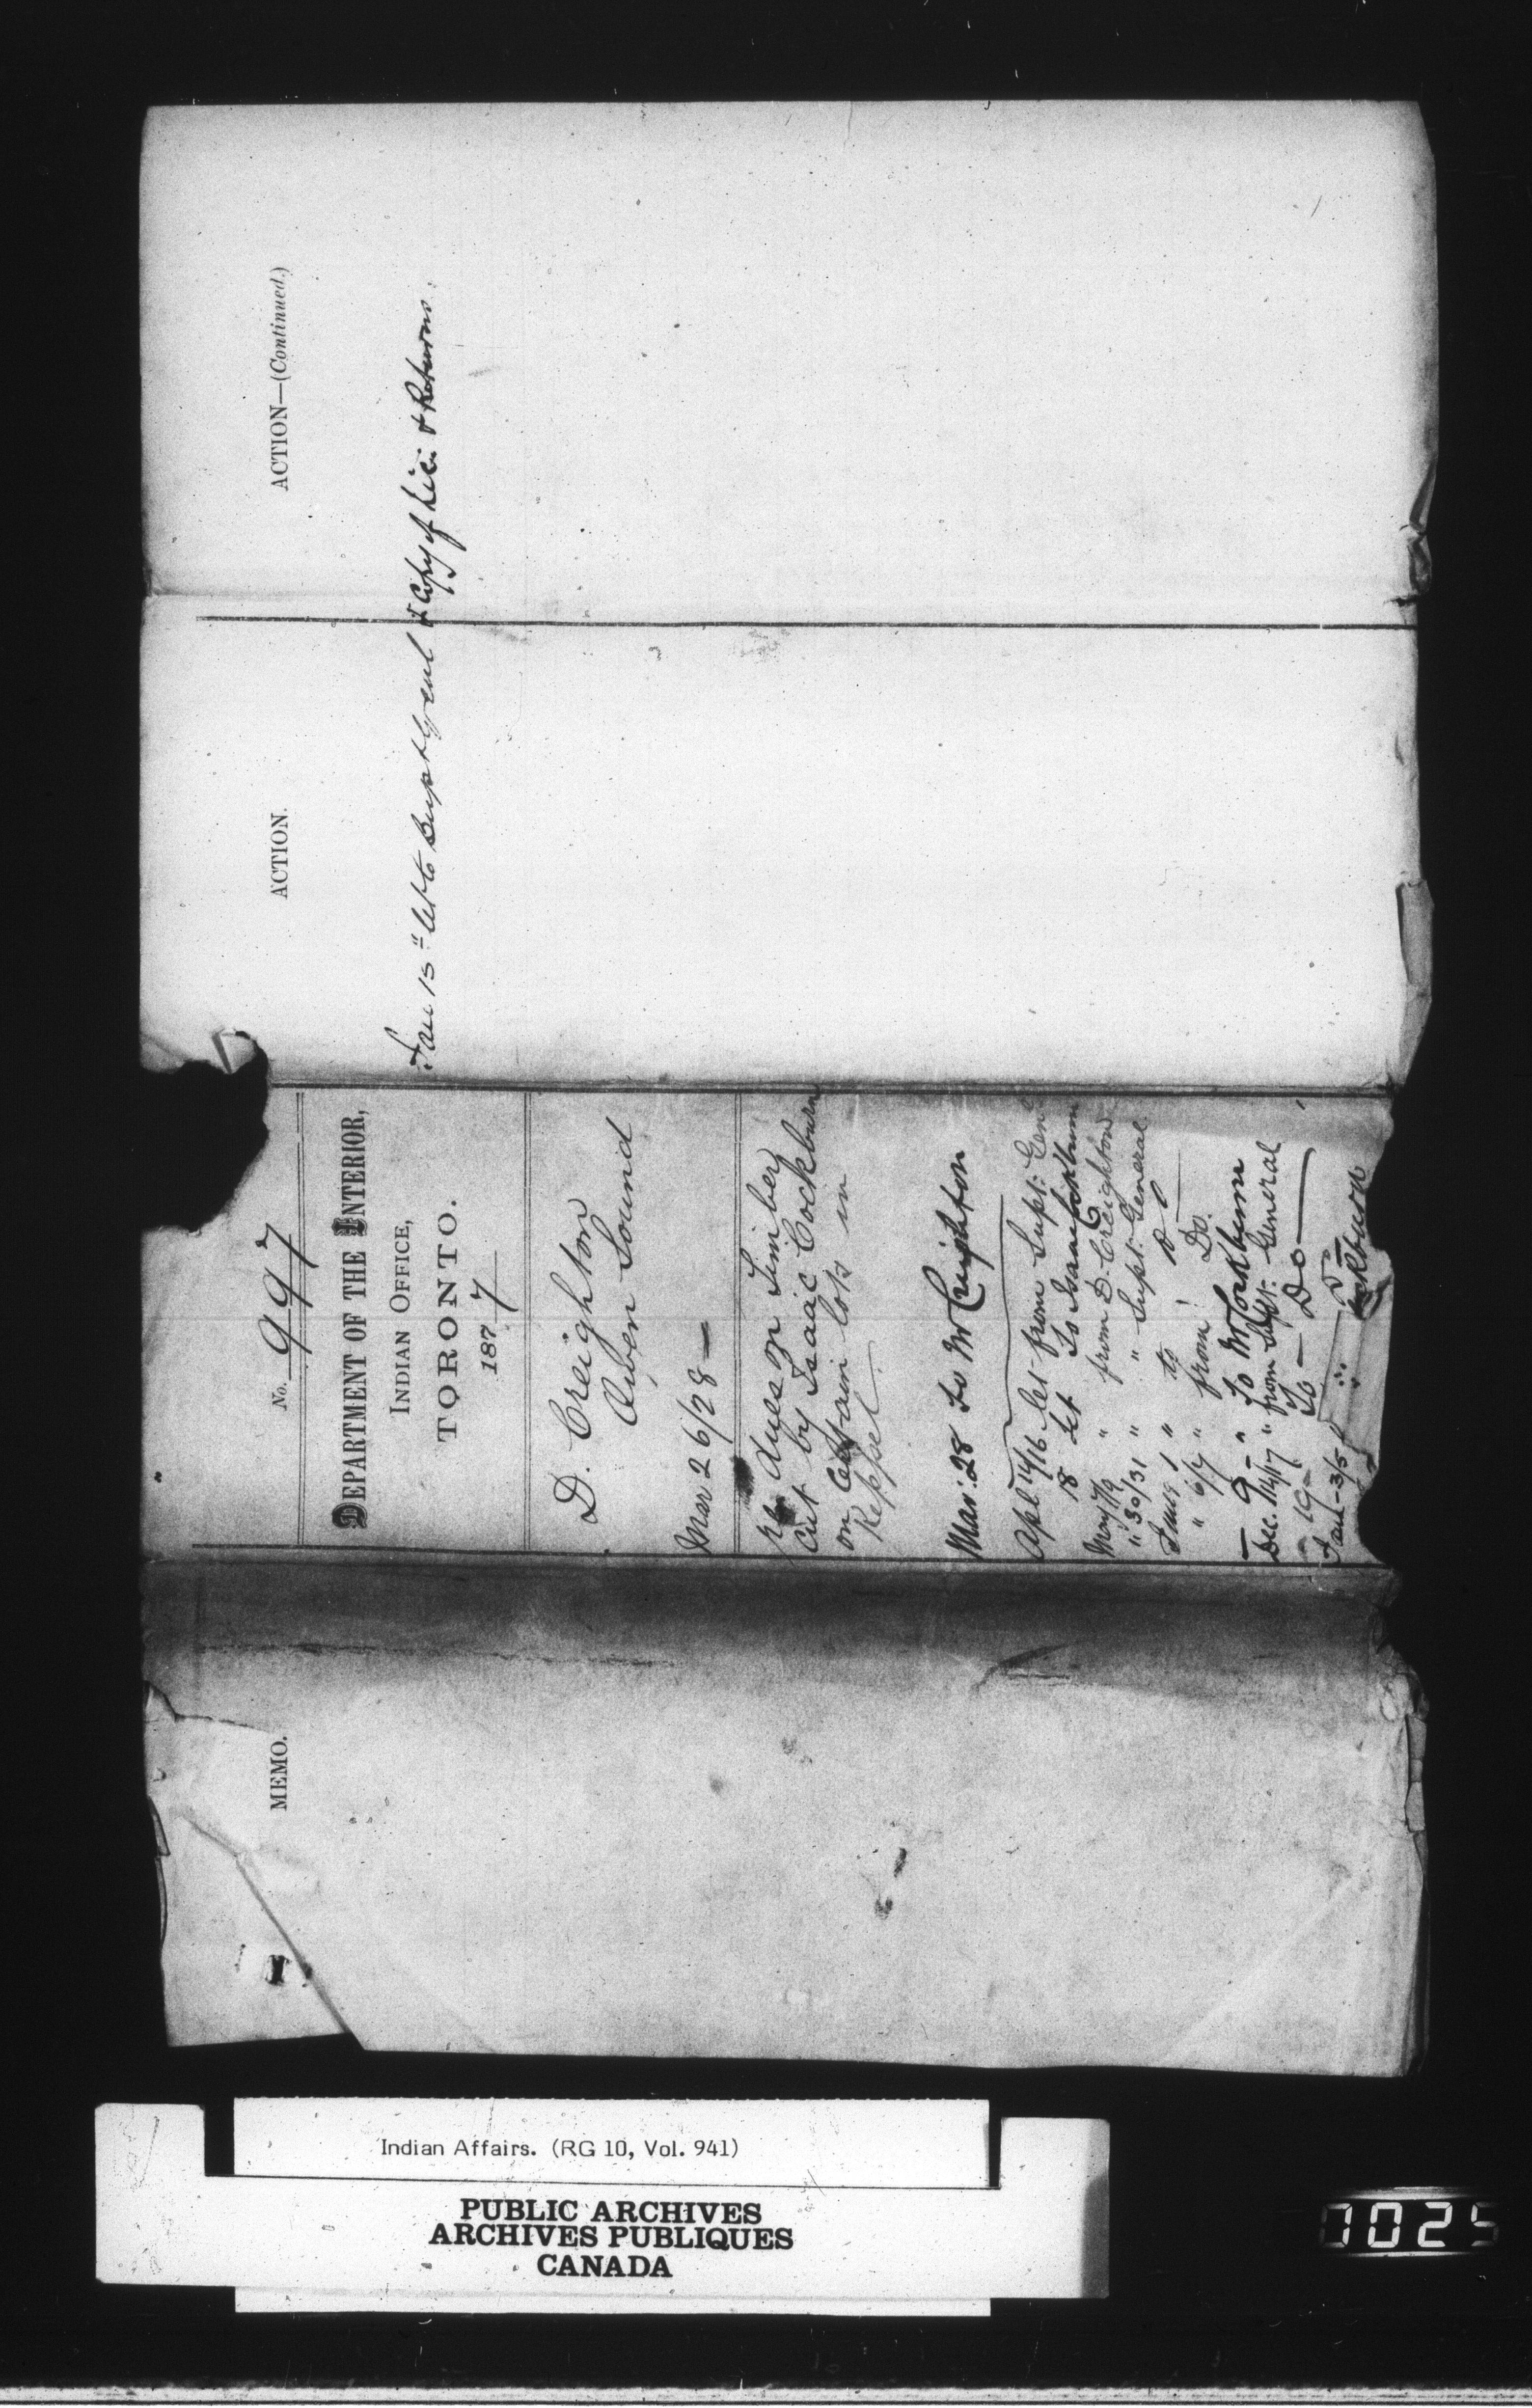 MEMO.
No. 997
DEPARTMENT OF THE INTERIOR,
INDIAN OFFICE,
TORONTO.
1877
D. Creighton
Owen Sound
Mar 26/28 —
re dues on Timber
cut by Isaac Cockburn
on certain lots in
Keppel
Mar: 28 to Mr Creighton
Apl 14/16 let from Supt: Genl
18 let to Isaac Cockburn
May 7/9 " from D. Creighton
" 30/31 " " Supt. General
June 1 " to do
" 6/7 " from Do.
— 9 — " to Mr Cockburn
Dec. 14/17 " from Supt. General
" 19 — To — Do —
Jan — 3/5
Cockburn
ACTION.
Jan 15" let to Supt Genl & copy of Lic: & Returns.
ACTION—(Continued.)
Indian Affairs. (RG 10, Vol. 941)
PUBLIC ARCHIVES
ARCHIVES PUBLIQUES
CANADA
0025